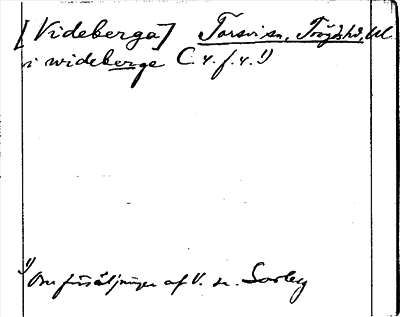 [Videberga] Torsvi sn, Trögds hd, Ul
i wideberge C. 4. f. 4. 1)
1) Om försäljningen af V. se Sorby